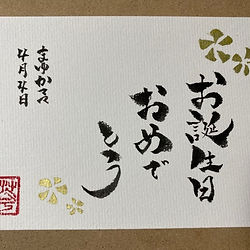 お誕生日
おめで
とう
まゆかさん
4月4日